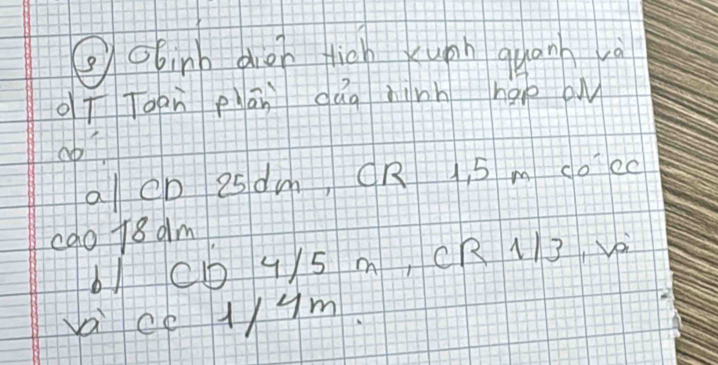 ③ Tính diện tích xung quanh và
DT Toàn phần của hình hộp CN
có
a) CD 25dm, CR 1,5 m có cc
cao 18 dm
b) CD 4/5 m, CR 1/3, và
và cc 1/4m.